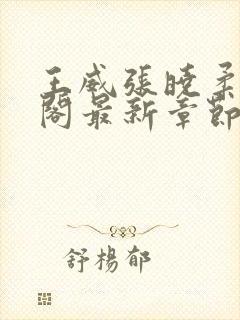 王威張曉柔
閣最新章節
舒楊郁